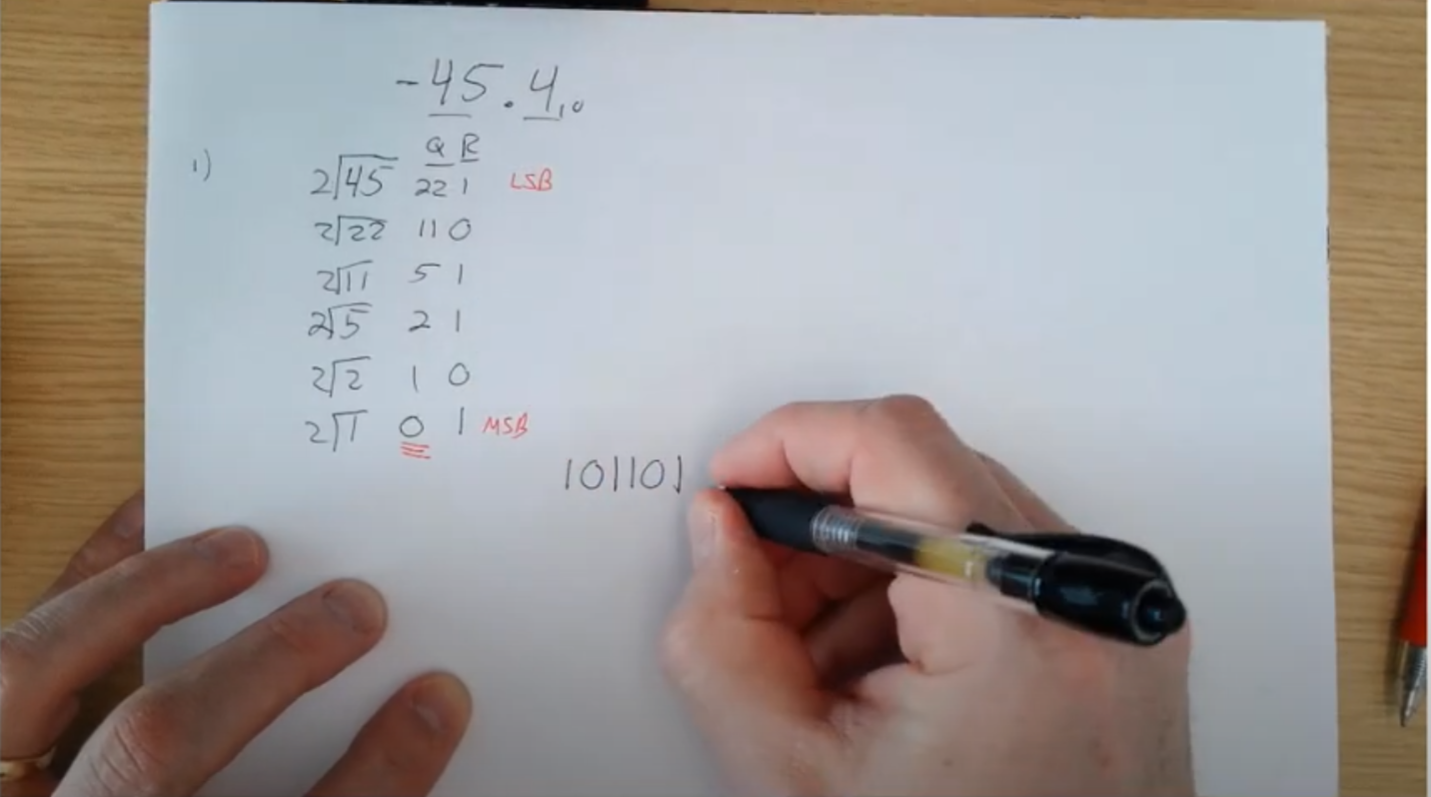 -45.4₁₀
Q R
1) 2√45 22 1 LSB
2√22 11 0
2√11 5 1
2√5 2 1
2√2 1 0
2√1 0 1 MSB
101101